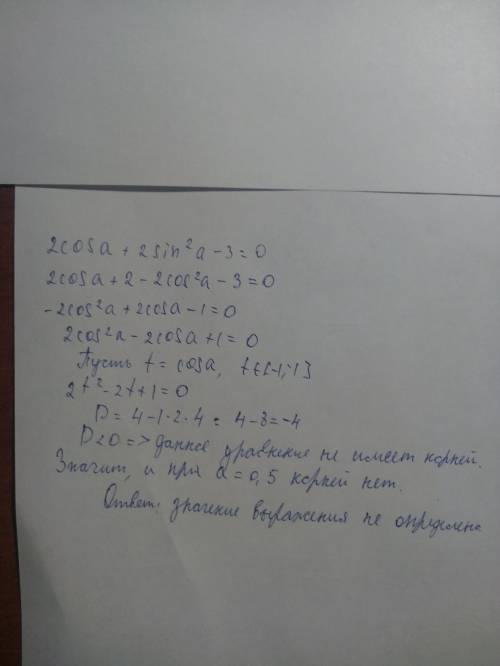 2cosa + 2sin²a - 3 = 0
2cosa + 2 - 2cos²a - 3 = 0
-2cos²a + 2cosa - 1 = 0
2cos²a - 2cosa + 1 = 0
Пусть t = cosa, t∈[-1;1]
2t² - 2t + 1 = 0
D = 4 - 1·2·4 = 4 - 8 = -4
D<0 => данное уравнение не имеет корней.
Значит, и при a = 0,5 корней нет.
Ответ: значение выражения не определено